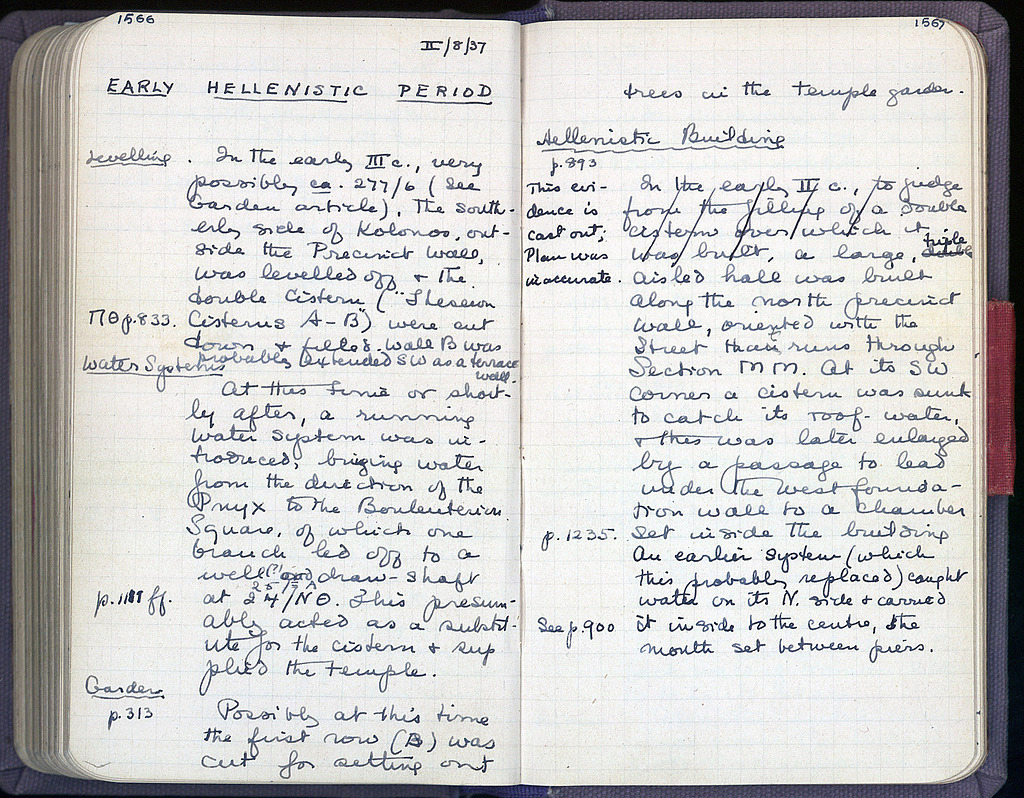 1566
II/8/37
EARLY HELLENISTIC PERIOD
Levelling. In the early III c., very
possibly ca. 277/6 (See
Garden article), the south-
erly side of Kolonos, out-
side the Precinct wall,
was levelled off & the
double cistern ("Theseion
ΠΘ p.833. Cisterns A-B") were cut
down & filled. Wall B was
probably extended SW as a terrace
wall.
Water Systems
At this time or short-
ly after, a running
water system was in-
troduced, bringing water
from the direction of the
Pnyx to the Bouleuterion
Square, of which one
branch led off to a
well (?) and draw-shaft
p. 1181 ff. at 24/ΝΘ. This presum-
ably acted as a substit-
ute for the cistern & sup
plied the temple.
Garden
p. 313 Possibly at this time
the first row (B) was
cut for setting out
1567
trees in the temple garden.
Hellenistic Building
p. 893
This evi-
dence is
cast out;
Plan was
inaccurate.
In the early II c., to judge
from the filling of a double
cistern over which it
was built, a large, double triple
aisled hall was built
along the north precinct
wall, oriented with the
Street that runs through
Section MM. At its SW
corner a cistern was sunk
to catch its roof-water,
& this was later enlarged
by a passage to lead
under the west founda-
tion wall to a chamber
p. 1235. set inside the building
An earlier system (which
this probably replaced) caught
water on its N. side & carried
See p. 900 it inside to the centre, the
mouth set between piers.